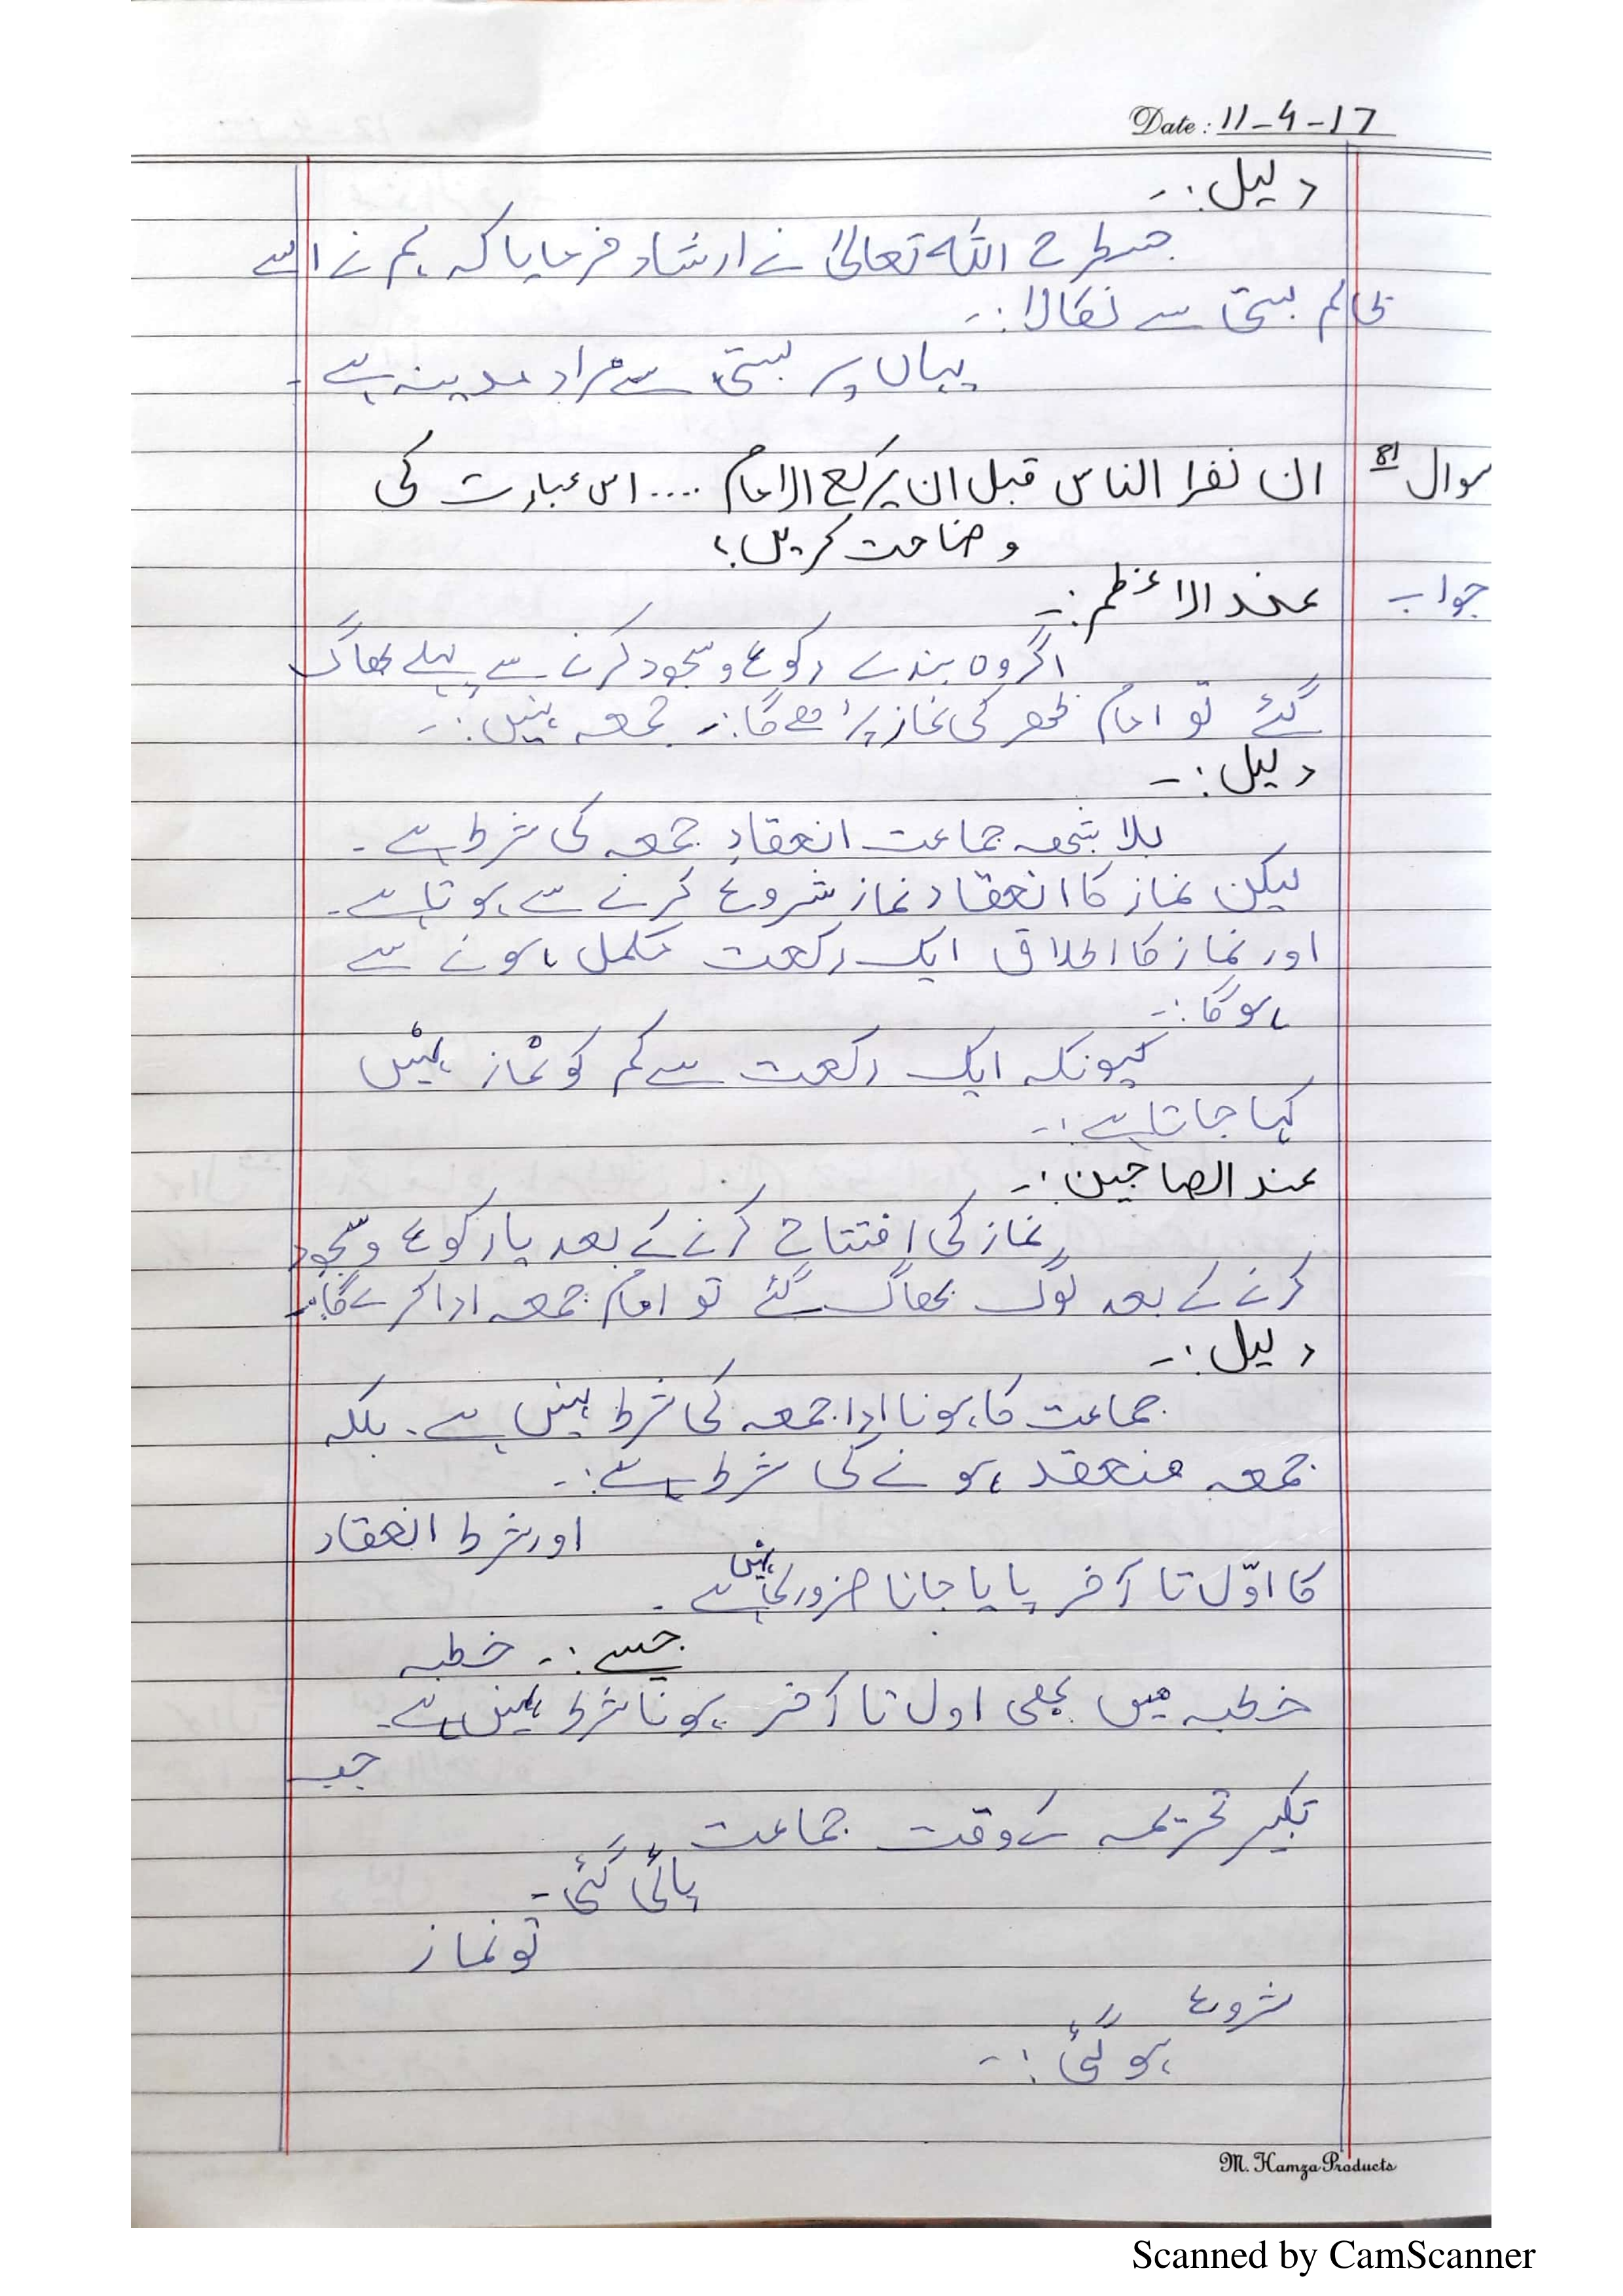 Date: 11-4-17
دلیل:-
جسطرح اللہ تعالیٰ نے ارشاد فرمایا کہ ہم نے اسے
ظالم بستی سے نکالا:-
یہاں پر بستی سے مراد مدینہ ہے۔
سوال 18 ان نفرا الناس قبل ان یرکع الامام .... اس عبارت کی
وضاحت کریں؟
جواب عند الاعظم:-
اگر وہ بندے رکوع و سجود کرنے سے پہلے بھاگ
گئے تو امام ظھر کی نماز پڑھے گا:- جمعہ نہیں:-
دلیل:-
بلا شبھہ جماعت انعقادِ جمعہ کی شرط ہے۔
لیکن نماز کا انعقاد نماز شروع کرنے سے ہوتا ہے۔
اور نماز کا اطلاق ایک رکعت مکمل ہونے سے
ہوگا:-
کیونکہ ایک رکعت سے کم کو نماز نہیں
کہا جاتا ہے:-
عند الصاحبین:-
نماز کی افتتاح کرنے کے بعد یا رکوع و سجود
کرنے کے بعد لوگ بھاگ گئے تو امام جمعہ ادا کرے گا:-
دلیل:-
جماعت کا ہونا ادا جمعہ کی شرط نہیں ہے۔ بلکہ
جمعہ منعقد ہونے کی شرط ہے:-
اور شرط انعقاد
کا اوّل تا آخر پایا جانا ضروری نہیں ہے۔
جیسے:- خطبہ
خطبہ میں بھی اول تا آخر ہونا شرط نہیں ہے۔
جب
تکبیر تحریمہ کے وقت جماعت
پائی گئی۔
تو نماز
شروع
ہو گئی:-
M. Hamza Products
Scanned by CamScanner